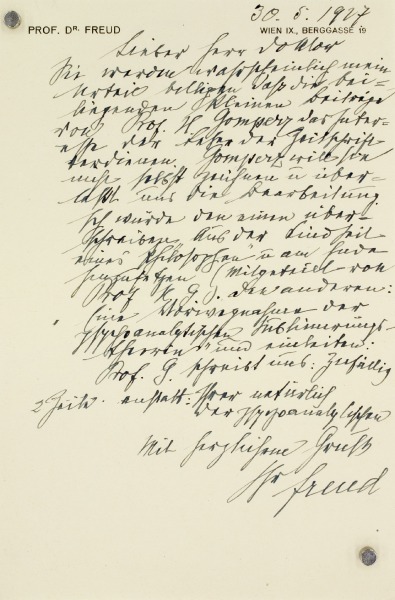 30. 5. 1927
PROF. DR. FREUD
WIEN IX., BERGGASSE 19
Lieber Herr Doktor
Sie werden wahrscheinlich mein
Urteil billigen daß die bei-
liegenden kleinen Beiträge
von Prof. H. Gomperz das Inter-
esse der Leser der Zeitschrift
verdienen. Gomperz will sie
nicht selbst zeichnen u über-
läßt uns die Bearbeitung
Ich würde den einen über-
schreiben: Aus der Kindheit
eines Philosophen u am Ende
hinzusetzen (Mitgeteilt von
Prof H. G.). Den anderen:
Eine Vorwegnahme der
psychoanalytischen
Theorie" und einleiten:
Prof. G. schreibt uns: Zufällig
2 Zeile. anstatt: Ihrer natürlich
der psychoanalytischen
Mit herzlichem Gruß
Ihr Freud